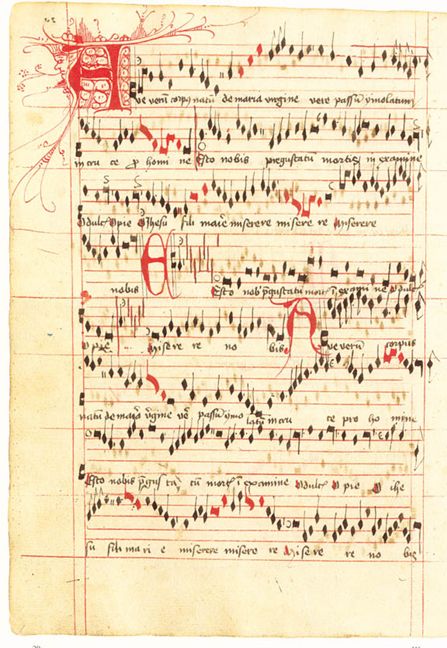 Ave verū corpꝯ natū de maria virgine vere passū ymolatum
in cru ce p̱ homi ne Esto nobis pregustatu mortis in examine
O dulcꝭ O pie O ihesu fili marie miserere misere re Miserere
nobis Esto nob̄ p̄gustatu mortꝭ ī exami ne O dulcꝭ
O pie Misere re no bis Ave verū corpus
natū de maria v̄gine ve passū ymo latū in cru ce pro ho mine
Esto nobis p̄gus ta tū mortꝭ ī examine O dulcꝭ O pie O ihe
su fili ma ri e miserere misere re Misere re no bis